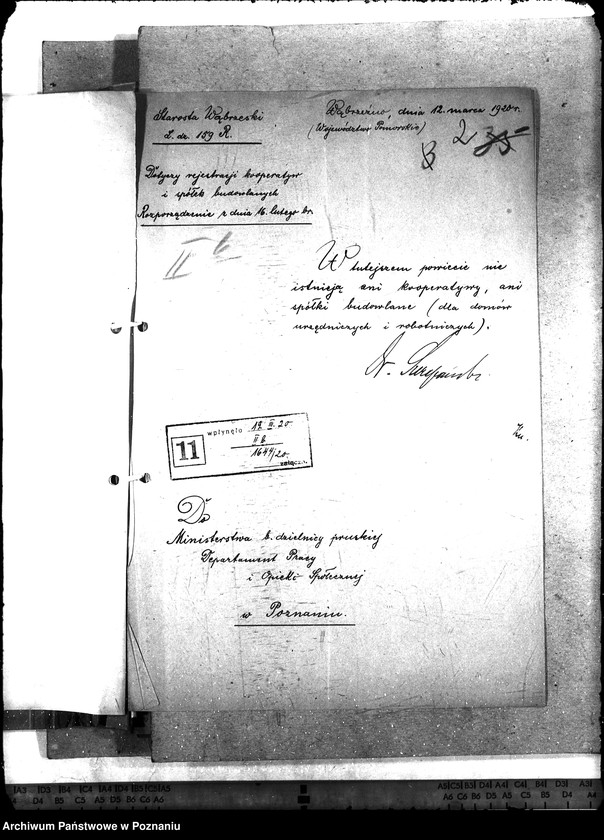 Starosta Wąbrzeski
L. dz. 159 R.
Wąbrzeźno, dnia 12. marca 1920 r.
(Województwo Pomorskie)
2 35
Dotyczy rejestracji kooperatyw
i spółek budowlanych
Rozporządzenie z dnia 16. lutego br.
II b
W tutejszem powiecie nie
istnieją ani kooperatywy, ani
spółki budowlane (dla domów
urzędniczych i robotniczych).
11
wpłynęło 19. III. 20
II b
1644/20.
załącz.
Do
Ministerstwa b. dzielnicy pruskiej
Departament Pracy
i Opieki Społecznej
w Poznaniu.
Archiwum Państwowe w Poznaniu